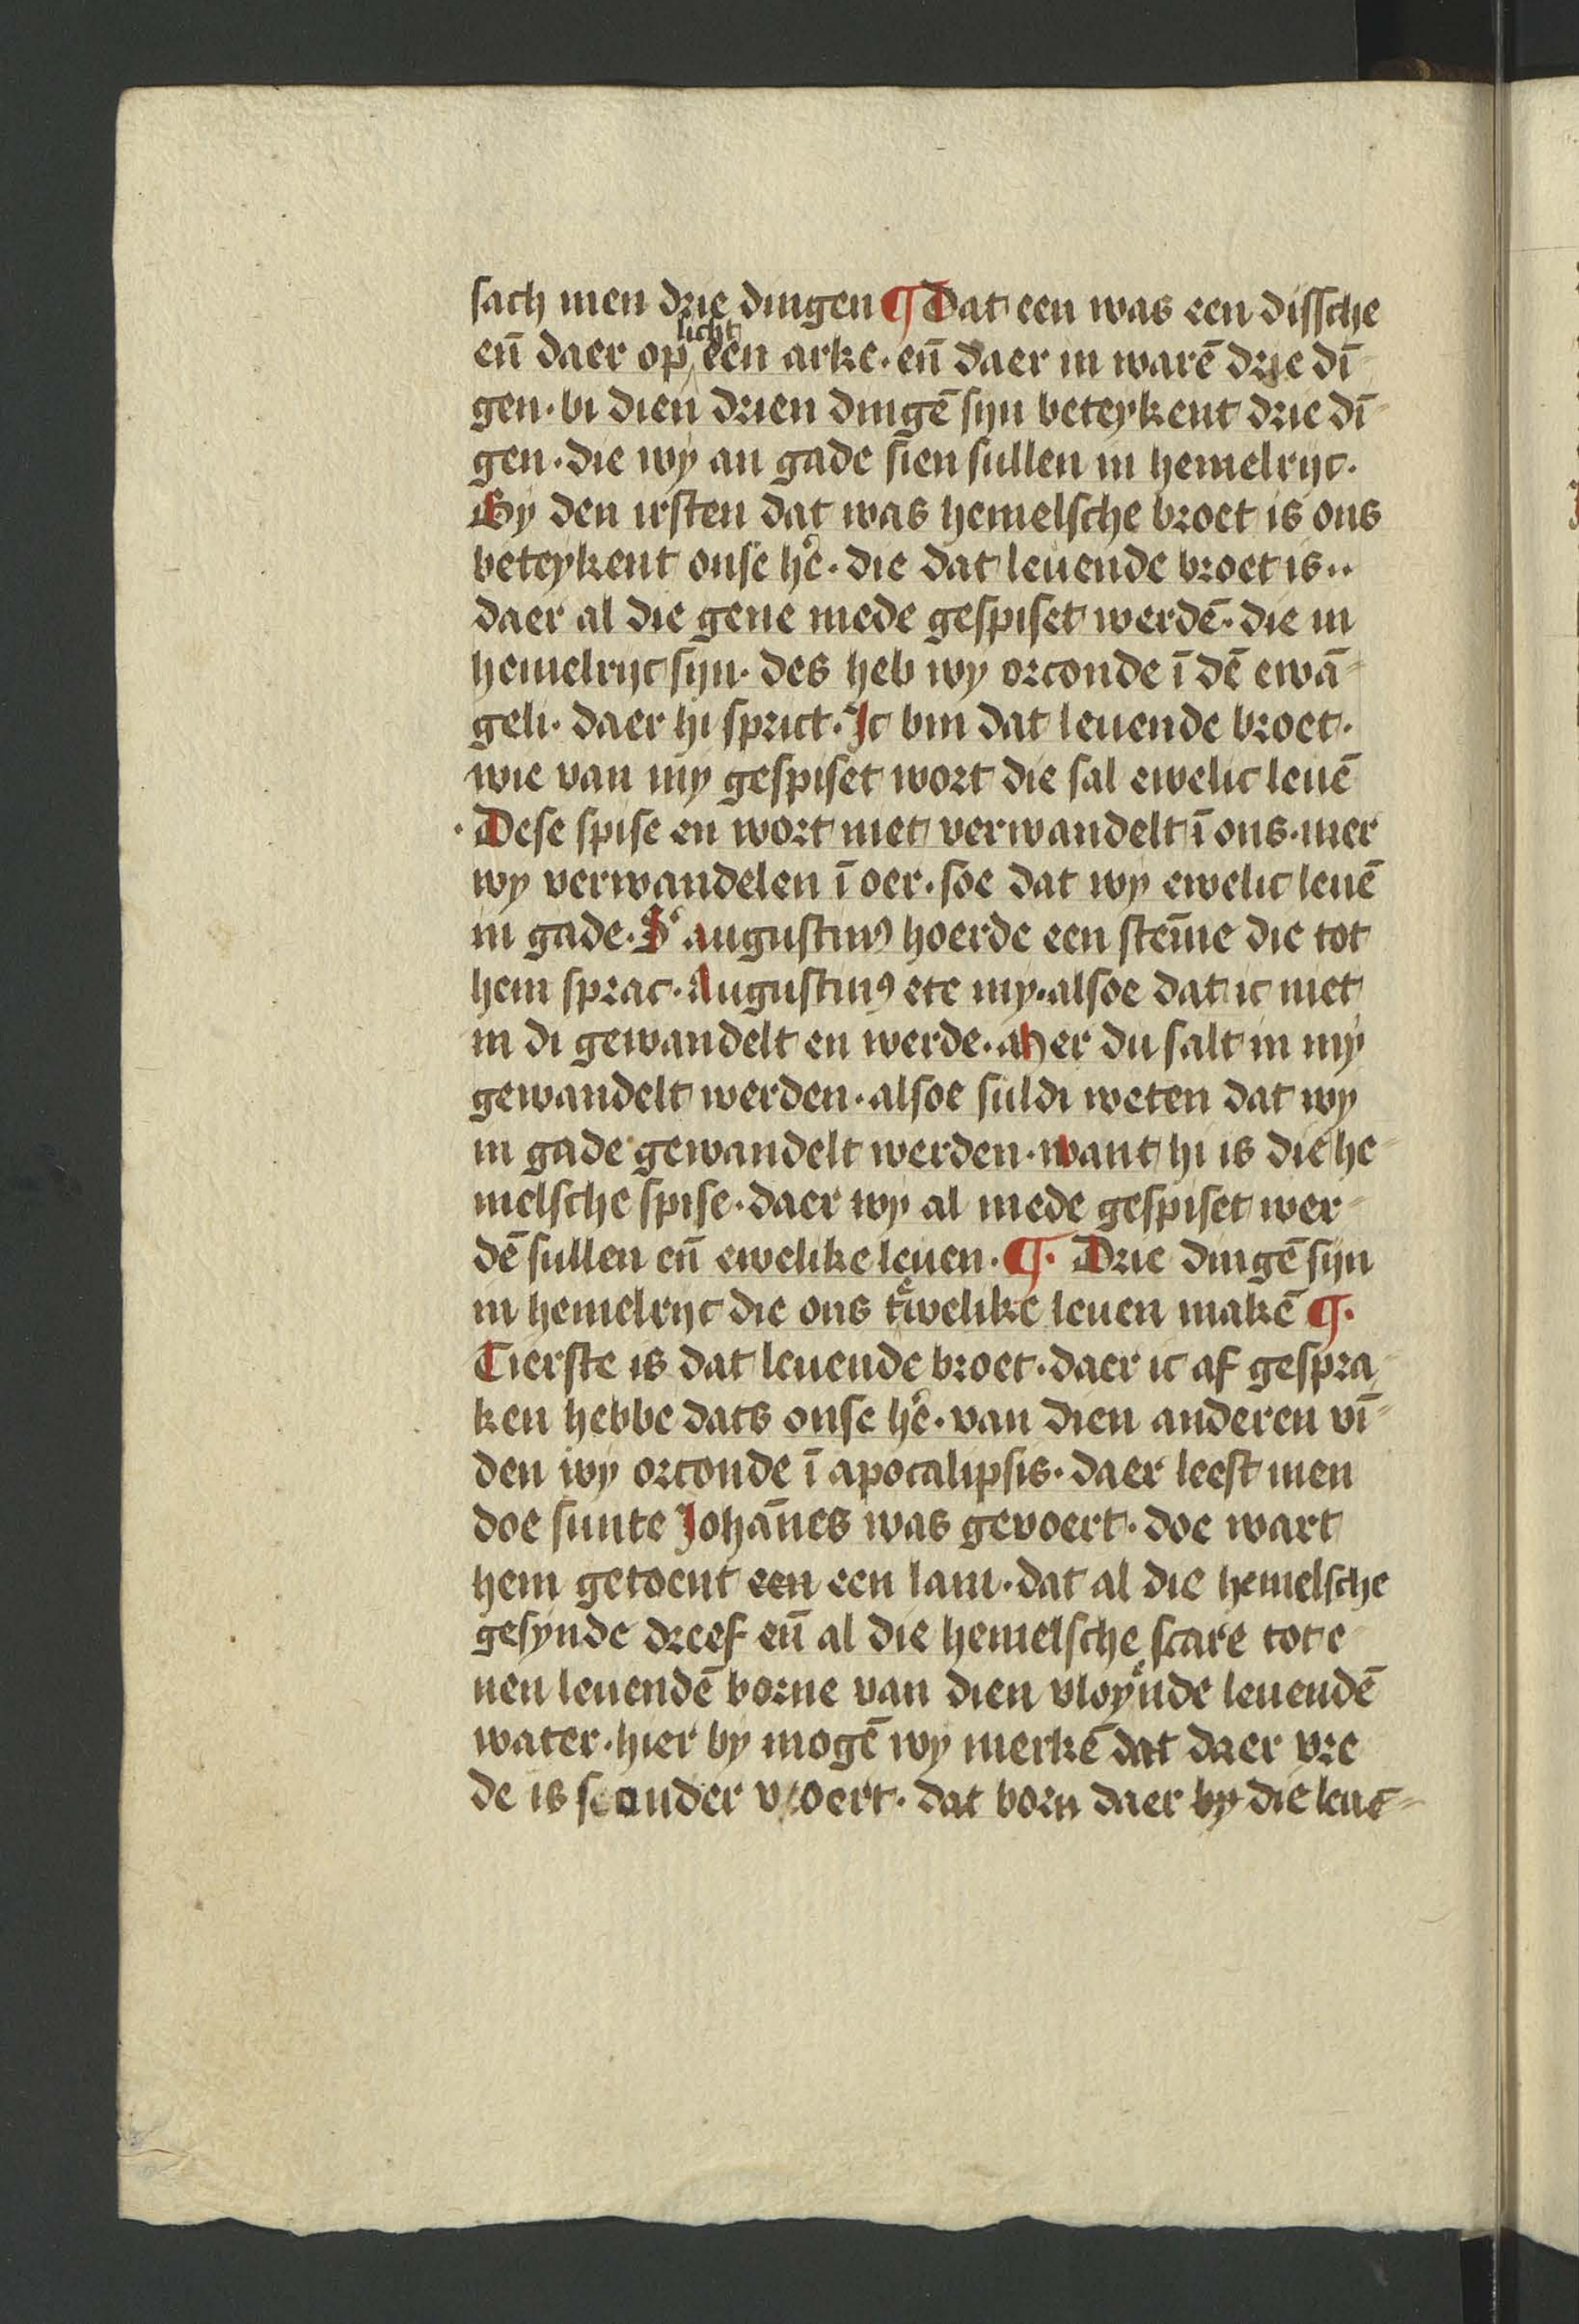 sach men drie dingen ¶ Dat een was een dissche
en̄ daer op licht een arke · en̄ daer in warē drie dī
gen · bi dien drien dingē sijn beteykent drie dī
gen · die wy an gade sien sullen in hemelrijc ·
By den irsten dat was hemelsche broet is ons
beteykent onse he͛ · die dat leuende broet is ··
daer al die gene mede gespiset werdē · die in
hemelrijc sijn · des heb wy orconde ī dē ewā
geli · daer hi sprict · Ic bin dat leuende broet ·
wie van my gespiset wort die sal ewelic leuē
· Dese spise en wort niet verwandelt ī ons · mer
wy verwandelen ī oer · soe dat wy ewelic leuē
in gade · S͛ augustinꝰ hoerde een stem̄e die tot
hem sprac · Augustinꝰ ete my · alsoe dat ic niet
in di gewandelt en werde · Mer du salt in my
gewandelt werden · alsoe suldi weten dat wy
in gade gewandelt werden · want hi is die he
melsche spise · daer wy al mede gespiset wer
dē sullen en̄ ewelike leuen · ¶ · Drie dingē sijn
in hemelrijc die ons teͤwelike leuen makē ¶ ·
Tierste is dat leuende broet · daer ic af gespra
ken hebbe dats onse he͛ · van dien anderen vī
den wy orconde ī apocalipsis · daer leest men
doe sunte Johān̄es was gevoert · doe wart
hem getoent een een lam · dat al die hemelsche
gesynde dreef en̄ al die hemelsche scare tot e
nen leuendē borne van dien vloyͤnde leuendē
water · hier by mogē wy merkē dat daer vre
de is sonder voert · dat born daer by die leuē